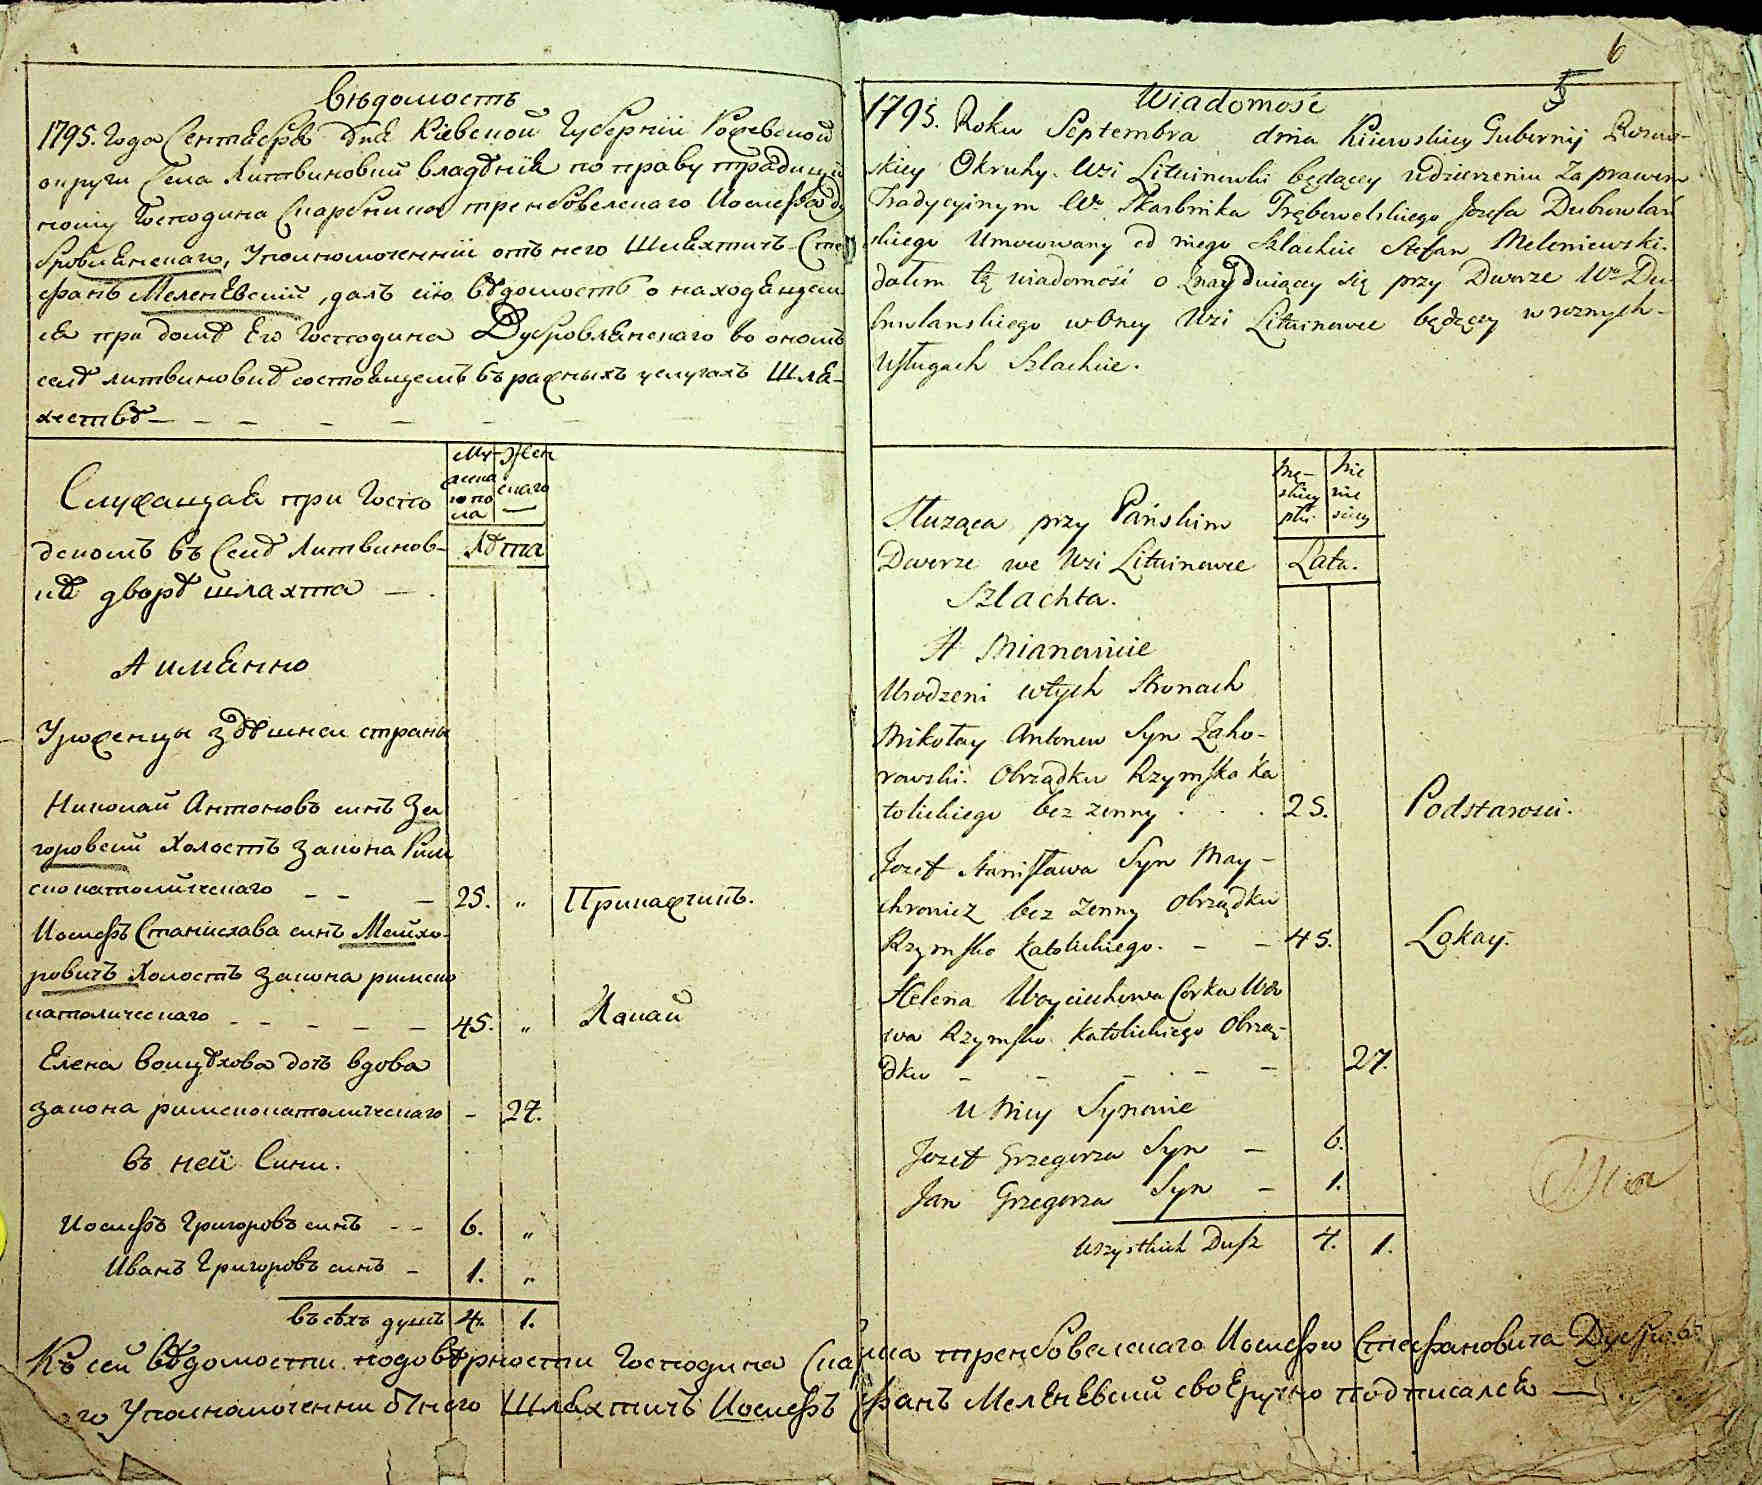 Вѣдомость
1795. Года Сентября дня Кіевской Губерніи
округи Села Литвиновки владѣнія по праву традицій
ному Господина Скарбника трембовелскаго Иосифа Ду
бровлянскаго, Уполномоченній отъ него Шляхтичъ Сте
фанъ Меленѣвскій, далъ сію вѣдомость о находящем
ся при домѣ Его Господина Дубровлянскаго во ономъ
селѣ литвиновкѣ состоящемъ въ разныхъ услугахъ Шля-
хетвѣ - - -
Служащая при Госпо
дскомъ въ Селѣ Литвинов-
кѣ дворѣ шлахта - .
Му-
жеска
го по
ла
Жен
скаго
Лѣта
А имянно
Уроженцы здѣшнеи страны
Николай Антоновъ синъ За
горовскій Холостъ закона Рим
скокатолическаго - - - 25. „ Прикащикъ.
Иосифъ Станислава синъ Майхо-
ровичъ Холостъ закона римско
католическаго - - - - - 45. „ Лакай
Елена Войцѣхова дочь вдова
закона римскокатолическаго - 27.
въ ней Сини.
Иосифъ Григоровъ синъ - - 6. „
Иванъ Григоровъ синъ - 1. „
въсѣхъ душъ 4. 1.
6
5
Wiadomość
1795. Roku Septembra dnia Kiiowskiey Gubernij
skiey Okruhy. Wsi Litwinowki będącey w dzierzeniu Za prawem
Tradycyinym Wo Skarbnika Trębowelskiego Jozefa Dubrowlań
skiego Umocowany od niego Szlachcic Stefan Meleniewski.
dałem tę wiadomość o Znayduiącey się przy Dworze Wo Du-
browlanskiego w Oney Wsi Litwinowce będącey w roznych-
Usługach Szlachcie.
Służąca przy Pańskim
Dworze we Wsi Litwinowce
Szlachta.
Mę-
skiey
płci
Nie
wie
sciey
Lata.
A Mianowicie
Urodzeni w tych Stronach
Mikołay Antonow Syn Zaho-
rowski. Obrządku Rzymsko Ka
tolickiego bez zenny . . . 25. Podstarosci.
Jozef Stanisława Syn May-
chrowicz bez Zenny Obrządku
Rzymsko Katolickiego. - - 45. Lokay.
Helena Woyciechowa Corka Wdo
wa Rzymsko Katolickiego Obrzą-
dku - - - - - 27.
U Niey Synowie
Jozef Grzegorza Syn - 6.
Jan Grzegorza Syn - 1.
Wszystkich Dusz 4. 1.
Къ сей вѣдомости подовѣрности Господина трембовелскаго Иосифа Стефановича
го Уполномоченни отнего Шляхтичъ Иосифъ Меленѣвскій своеручно подписался -